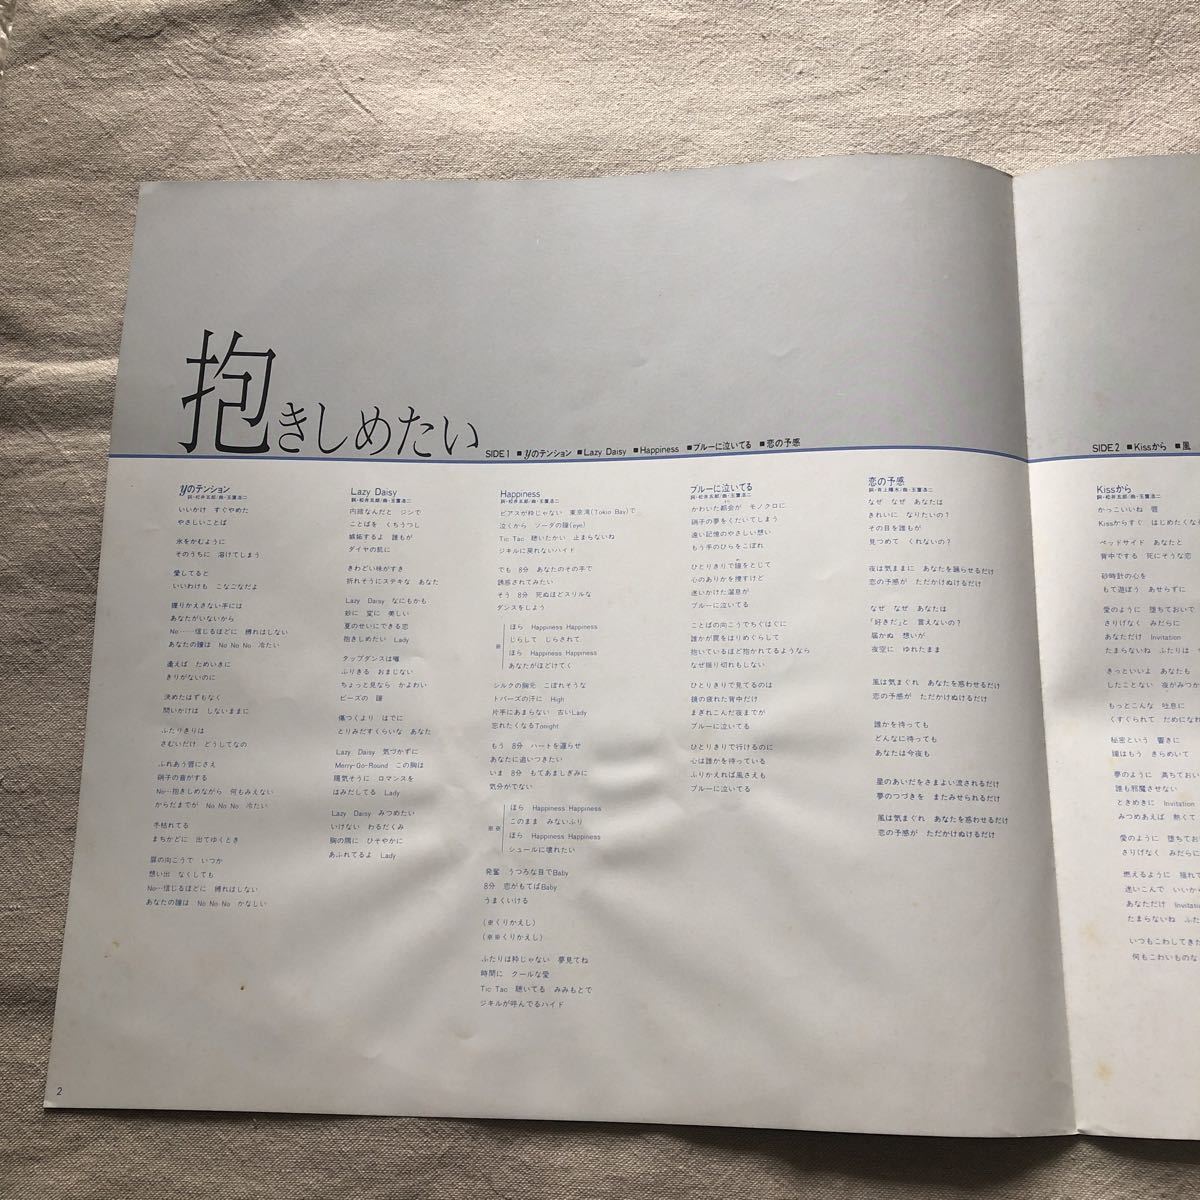 抱きしめたい
SIDE1 ■yのテンション ■Lazy Daisy ■Happiness ■ブルーに泣いてる ■恋の予感
yのテンション
詞・松井五郎/曲・玉置浩二
いいかけ すぐやめた
やさしいことば
氷をかむように
そのうちに 溶けてしまう
愛してると
いいわけも こなごなだよ
握りかえさない手には
あなたがいないから
No……信じるほどに 縛れはしない
あなたの瞳は No No No 冷たい
逢えば ためいきに
きりがないのに
決めたはずもなく
問いかけは しないままに
ふたりきりは
さむいだけ どうしてなの
ふれあう唇にさえ
硝子の音がする
No…抱きしめながら 何もみえない
からだまでが No No No 冷たい
手枯れてる
まちかどに 出てゆくとき
扉の向こうで いつか
想い出 なくしても
No…信じるほどに 縛れはしない
あなたの瞳は No No No かなしい
Lazy Daisy
詞・松井五郎/曲・玉置浩二
内緒なんだと ジンで
ことばを くちうつし
嫉妬するよ 誰もが
ダイヤの肌に
きわどい味がすき
折れそうにステキな あなた
Lazy Daisy なにもかも
妙に 変に 美しい
夏のせいにできる恋
抱きしめたい Lady
タップダンスは囁
ふりきる おまじない
ちょっと見なら かよわい
ビーズの 瞳
傷つくより はでに
とりみだすくらいな あなた
Lazy Daisy 気づかずに
Merry-Go-Round この胸は
陽気そうに ロマンスを
はみだしてる Lady
Lazy Daisy みつめたい
いけない わるだくみ
胸の隅に ひそやかに
あふれてるよ Lady
Happiness
詞・松井五郎/曲・玉置浩二
ピアスが粋じゃない 東京湾(Tokio Bay)で
泣くから ソーダの瞳(eye)
Tic Tac 聴いたかい 止まらないね
ジキルに戻れないハイド
でも 8分 あなたのその手で
誘惑されてみたい
そう 8分 死ぬほどスリルな
ダンスをしよう
※
ほら Happiness Happiness
じらして じらされて
ほら Happiness Happiness
あなたがほどけてく
シルクの胸元 こぼれそうな
トパーズの汗に High
片手にあまらない 古いLady
忘れたくなるTonight
もう 8分 ハートを遅らせ
あなたに追いつきたい
いま 8分 もてあましぎみに
気分がでない
※※
ほら Happiness Happiness
このまま みないふり
ほら Happiness Happiness
シュールに壊れたい
発奮 うつろな目でBaby
8分 恋がもてばBaby
うまくいける
(※くりかえし)
(※※くりかえし)
ふたりは粋じゃない 夢見てね
時間に クールな愛
Tic Tac 聴いてる みみもとで
ジキルが呼んでるハイド
ブルーに泣いてる
詞・松井五郎/曲・玉置浩二
かわいた都会が モノクロに
硝子の夢をくだいてしまう
遠い記憶のやさしい想い
もう手のひらをこぼれ
ひとりきりで瞳をとじて
心のありかを捜すけど
迷いかけた溜息が
ブルーに泣いてる
ことばの向こうでちぐはぐに
誰かが罠をはりめぐらして
抱いているほど抱かれてるようなら
なぜ振り切れもしない
ひとりきりで見てるのは
鏡の疲れた背中だけ
まぎれこんだ夜までが
ブルーに泣いてる
ひとりきりで行けるのに
心は誰かを待っている
ふりかえれば風さえも
ブルーに泣いてる
恋の予感
詞・井上陽水/曲・玉置浩二
なぜ なぜ あなたは
きれいに なりたいの?
その目を誰もが
見つめて くれないの?
夜は気ままに あなたを踊らせるだけ
恋の予感が ただかけぬけるだけ
なぜ なぜ あなたは
「好きだ」と 言えないの?
届かぬ 想いが
夜空に ゆれたまま
風は気まぐれ あなたを惑わせるだけ
恋の予感が ただかけぬけるだけ
誰かを待っても
どんなに待っても
あなたは今夜も
星のあいだをさまよい流されるだけ
夢のつづきを またみせられるだけ
風は気まぐれ あなたを惑わせるだけ
恋の予感が ただかけぬけるだけ
2
SIDE2 ■Kissから ■風
Kissから
詞・松井五郎/曲・玉置浩二
かっこいいね 唇
Kissからすぐ はじめたくな
ベッドサイド あなたと
背中でする 死にそうな恋
砂時計の心を
もて遊ぼう あせらずに
愛のように 堕ちておいで
さりげなく みだらに
あなただけ Invitation
たまらないね ふたりは
きっといいよ あなたも
したことない 夜がみつか
もっとこんな 吐息に
くすぐられて だめになれ
秘密という 響きに
瞳はもう きらめいて
夢のように 満ちておい
誰も邪魔させない
ときめきに Invitation
みつめあえば 熱くて
愛のように 堕ちてお
さりげなく みだらに
燃えるように 揺れて
迷いこんで いいから
あなただけ Invitation
たまらないね ふた
いつもこわしてきた
何もこわいものな